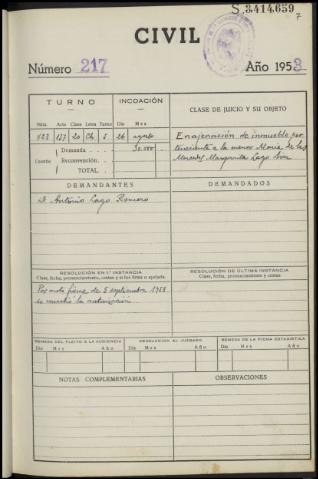 S.3414.659
7
CIVIL
Número 217 Año 1958
TURNO INCOACIÓN CLASE DE JUICIO Y SU OBJETO
Núm. Acto Clase Letra Turno Día Mes
423 127 20 Ch 5 26 agosto Enajenación de inmueble per-
Demanda 30.000 teneciente a la menor María de las
Cuantía Reconvención Mercedes Margarita Lago
TOTAL
DEMANDANTES DEMANDADOS
D. Antonio Lago Romero
RESOLUCIÓN EN 1.ª INSTANCIA RESOLUCIÓN DE ÚLTIMA INSTANCIA
Clase, fecha, pronunciamiento, costas y si fue firme o apelada Clase, fecha, pronunciamiento y costas
Por auto firme de 5 septiembre 1958
se concedió la autorización
REMESA DEL PLEITO A LA AUDIENCIA DEVOLUCIÓN AL JUZGADO REMESA DE LA FICHA ESTADÍSTICA
Día Mes Año Día Mes Año Día Mes Año
NOTAS COMPLEMENTARIAS OBSERVACIONES